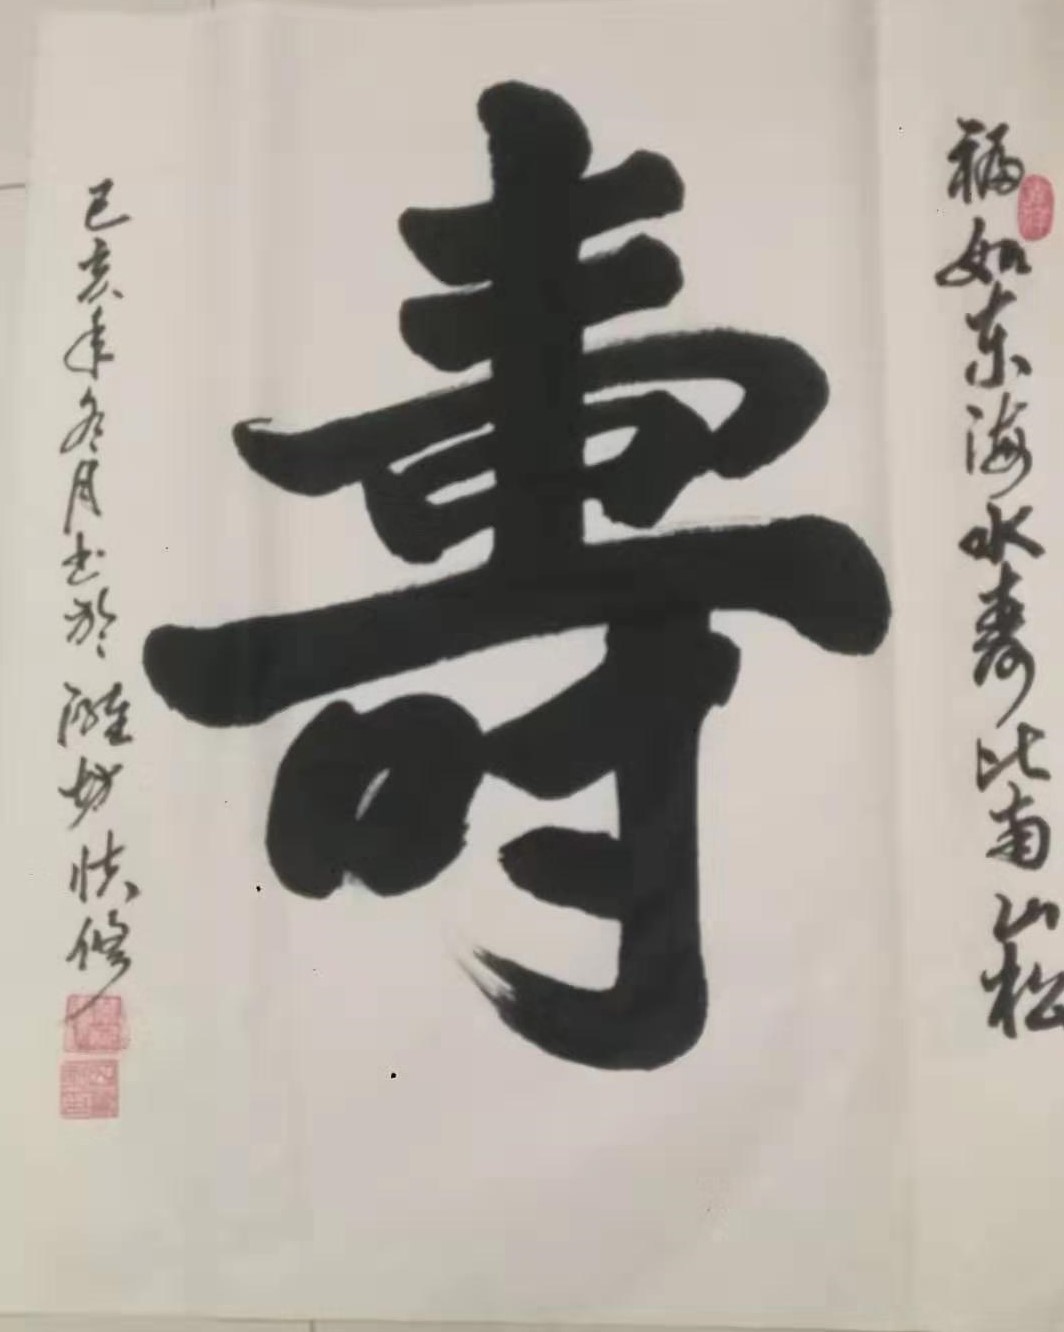 福如东海水寿比南山松
寿
己亥年冬月书於